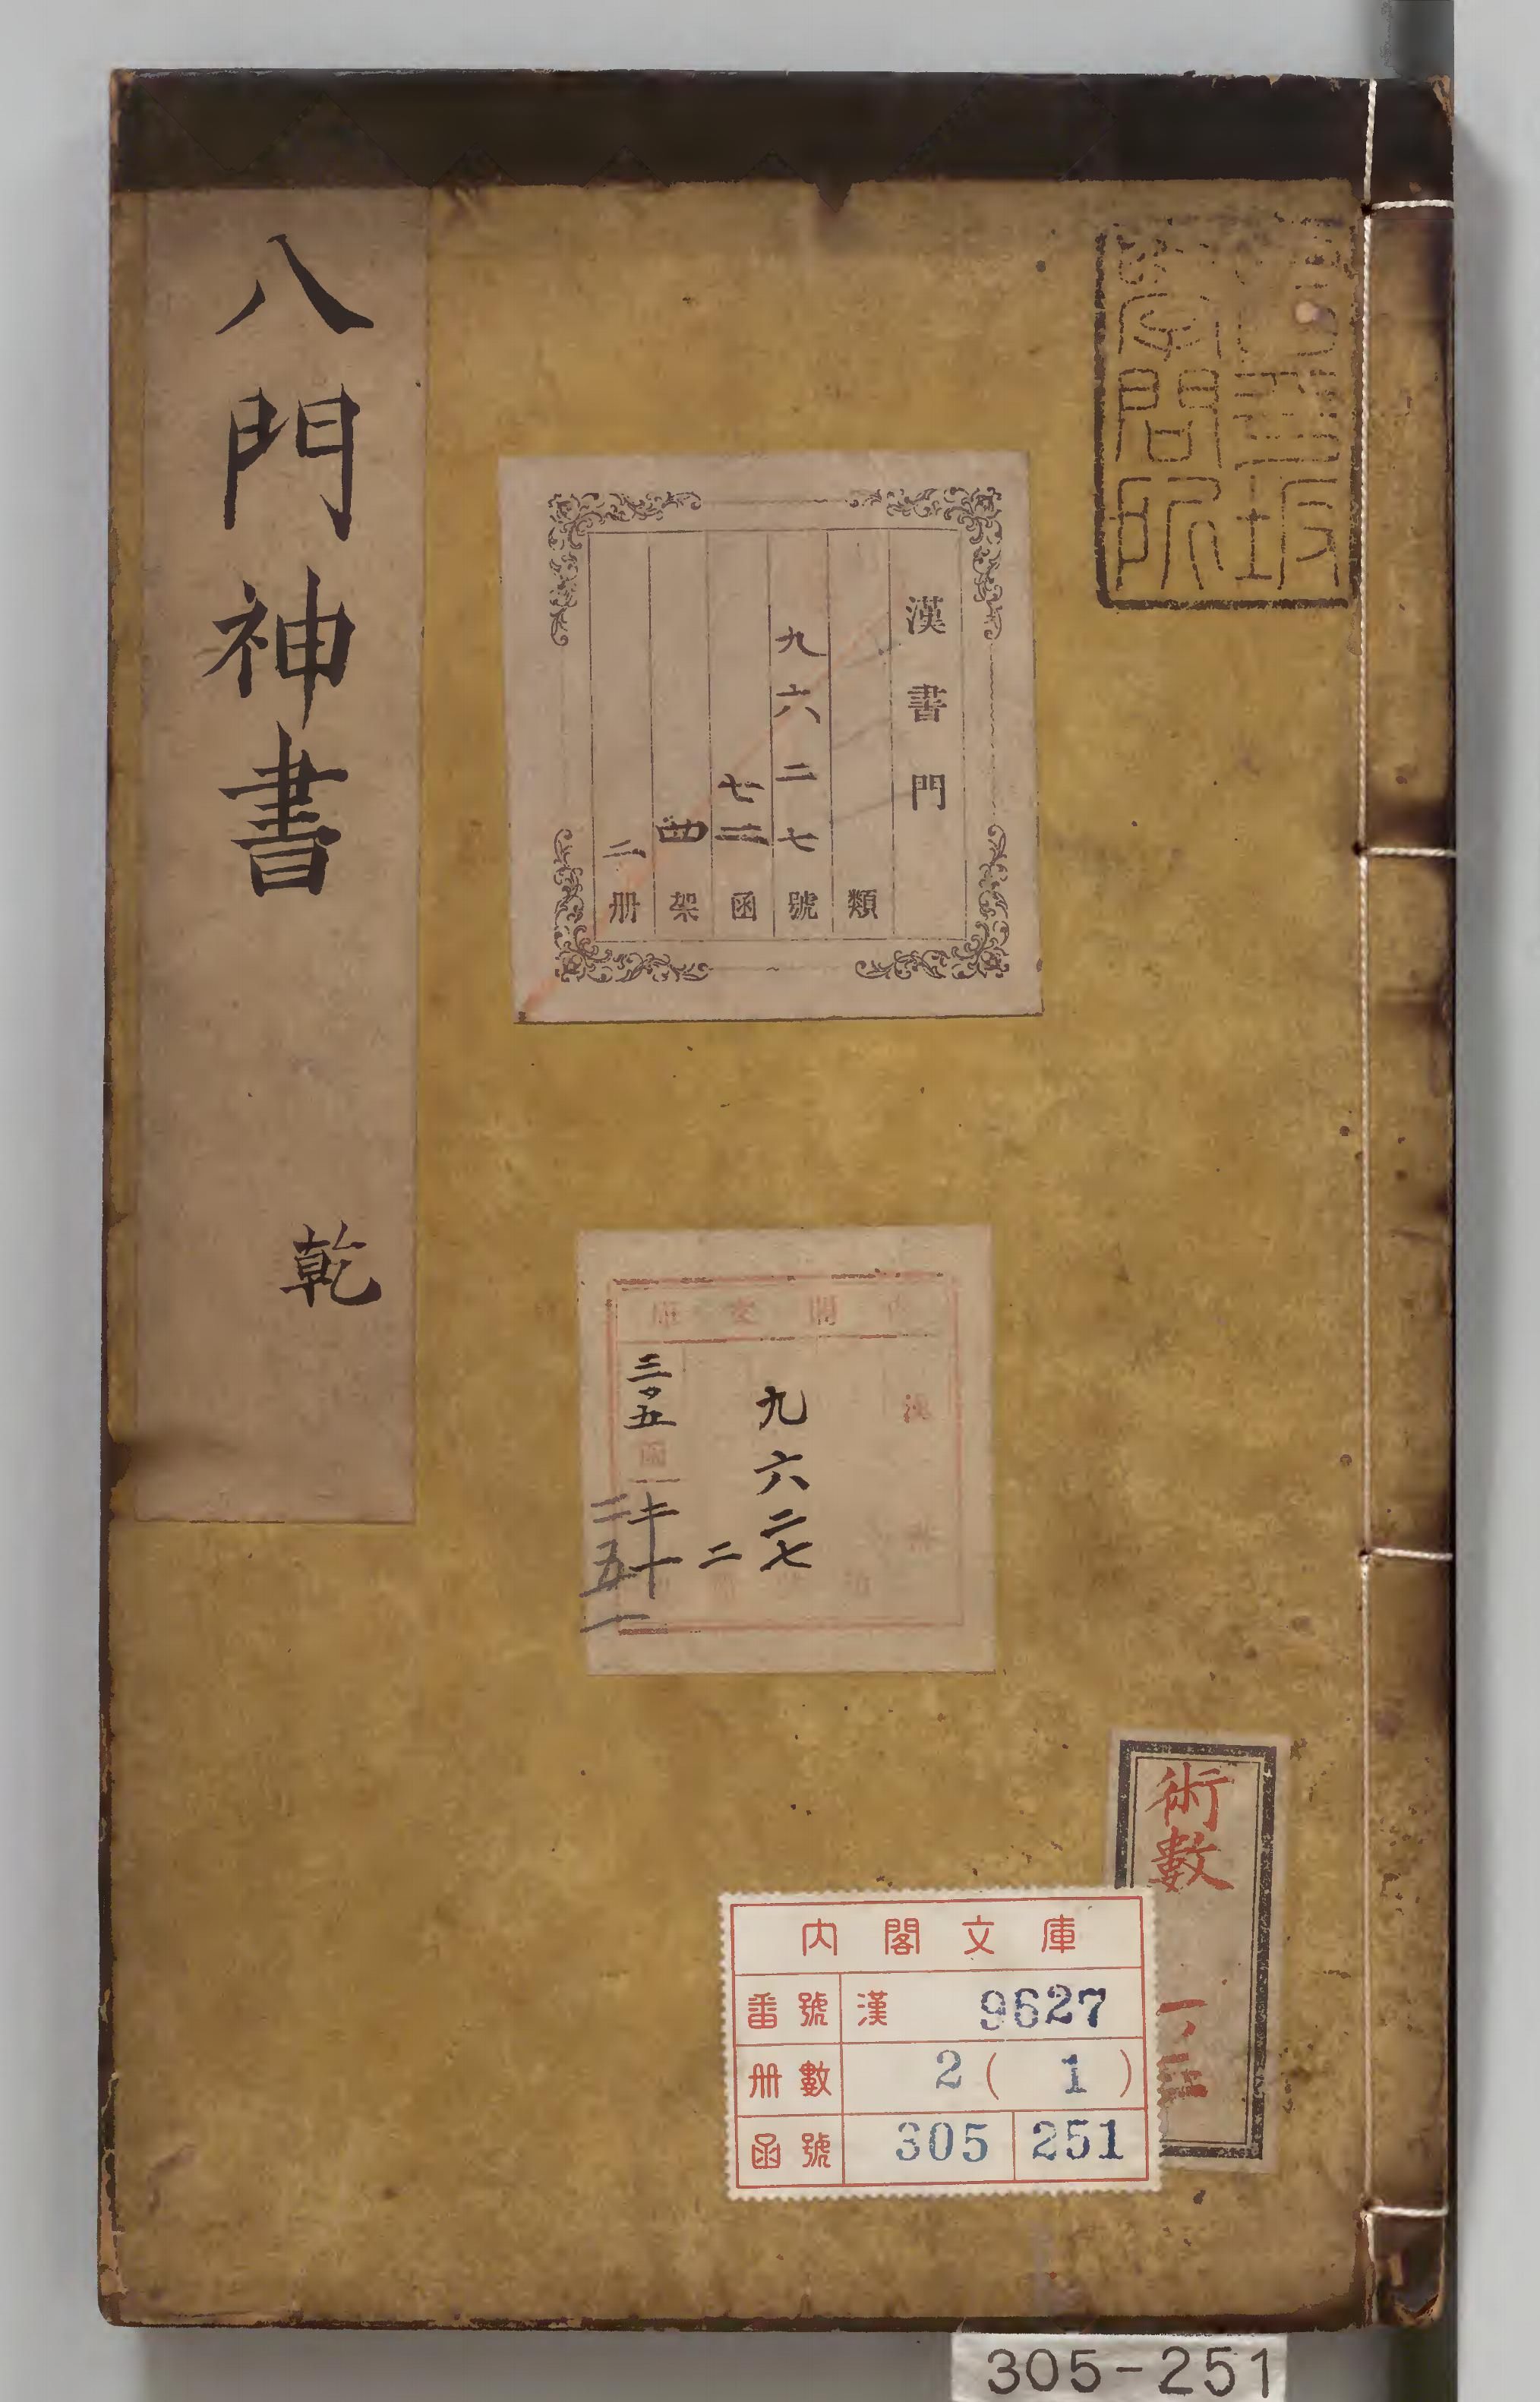 八門神書 乾
昌平坂
學問所
漢書門
類
九六二七號
七二函
四架
二册
內閣文庫
漢
九六二七
二
三〇五函
二五一
術數
內閣文庫
番號 漢 9627
册數 2 ( 1 )
函號 305 251
305-251